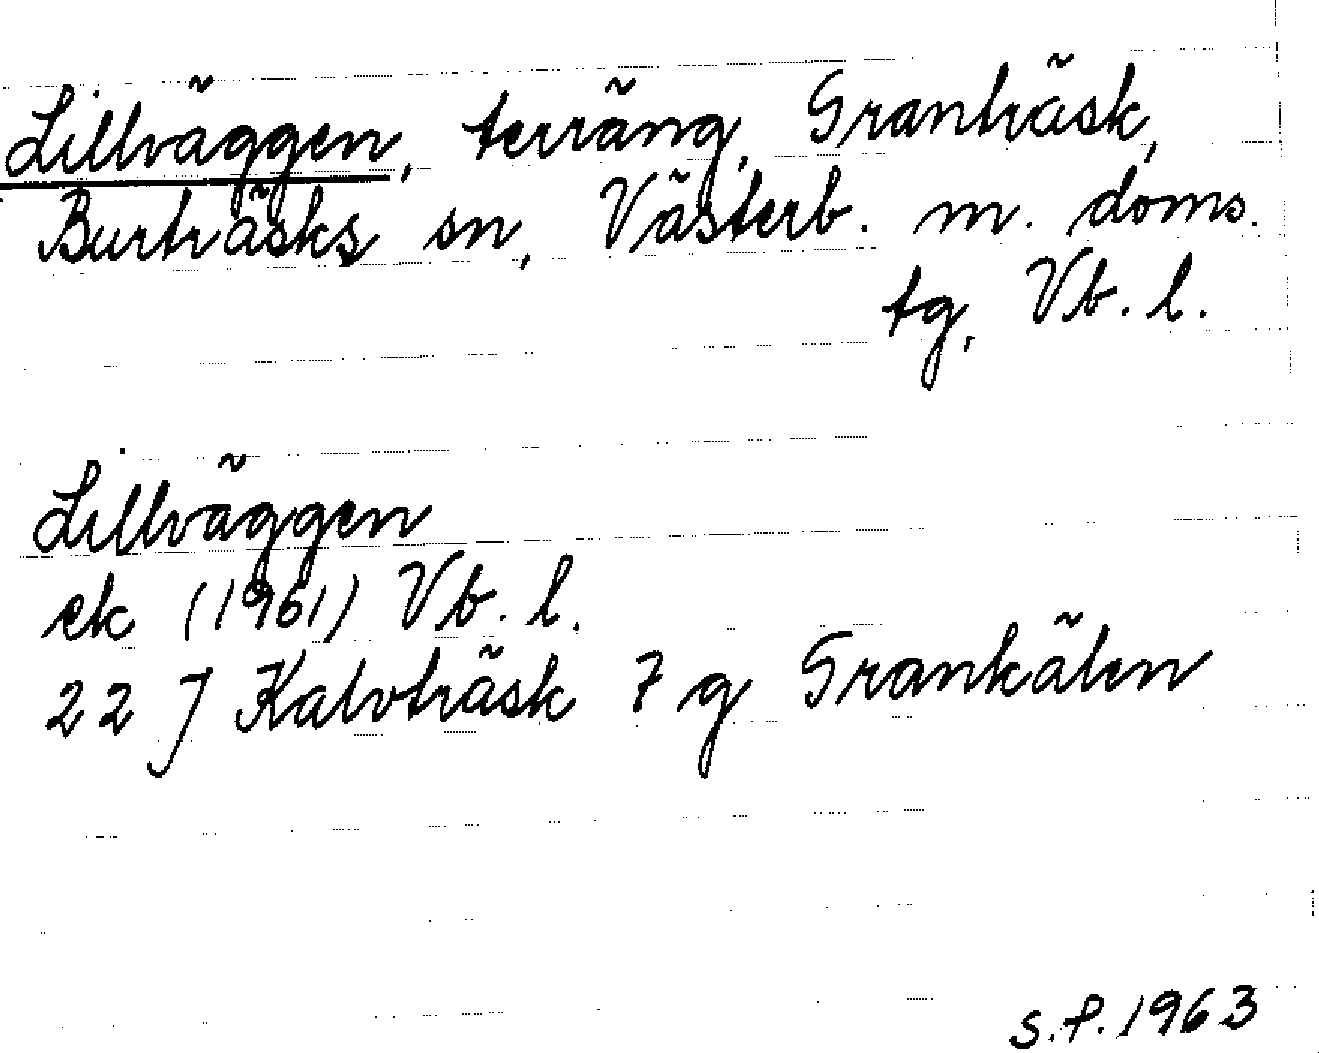 Lillväggen, terräng, Granträsk,
Burträsks sn, Västerb. m. doms.
tg, Vb. l.
Lillväggen
ek (1961) Vb. l.
22 J Kalvträsk 7 g Grankälen
S.P. 1963